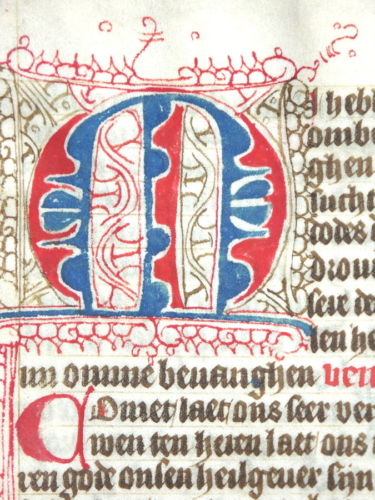 MI hebb
ombe
ghen
sucht
todes
droue
seir de
len he
mi omme beuanghen ven
Comet laet ons seer ver
wen ten heren laet ons
ren gode onsen heilgeuer sijn